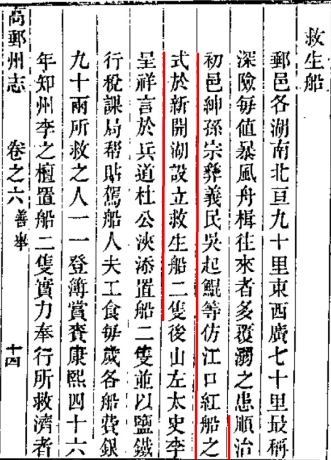 救生船
郵邑各湖南北亘九十里東西廣七十里最稱
深險每值暴風舟楫往來者多覆溺之患順治
初邑紳孫宗彝義民吳起鯤等倣江口紅船之
式於新開湖設立救生船二隻後山左太史李
呈祥言於兵道杜公漺添置船二隻並以鹽鐵
行稅課局幇貼駕船人夫工食每歲各船費銀
九十兩所救之人一一登簿賞賚康熙四十六
年知州李之檀置船二隻實力奉行所救濟者
高郵州志 卷之六 善舉 十四